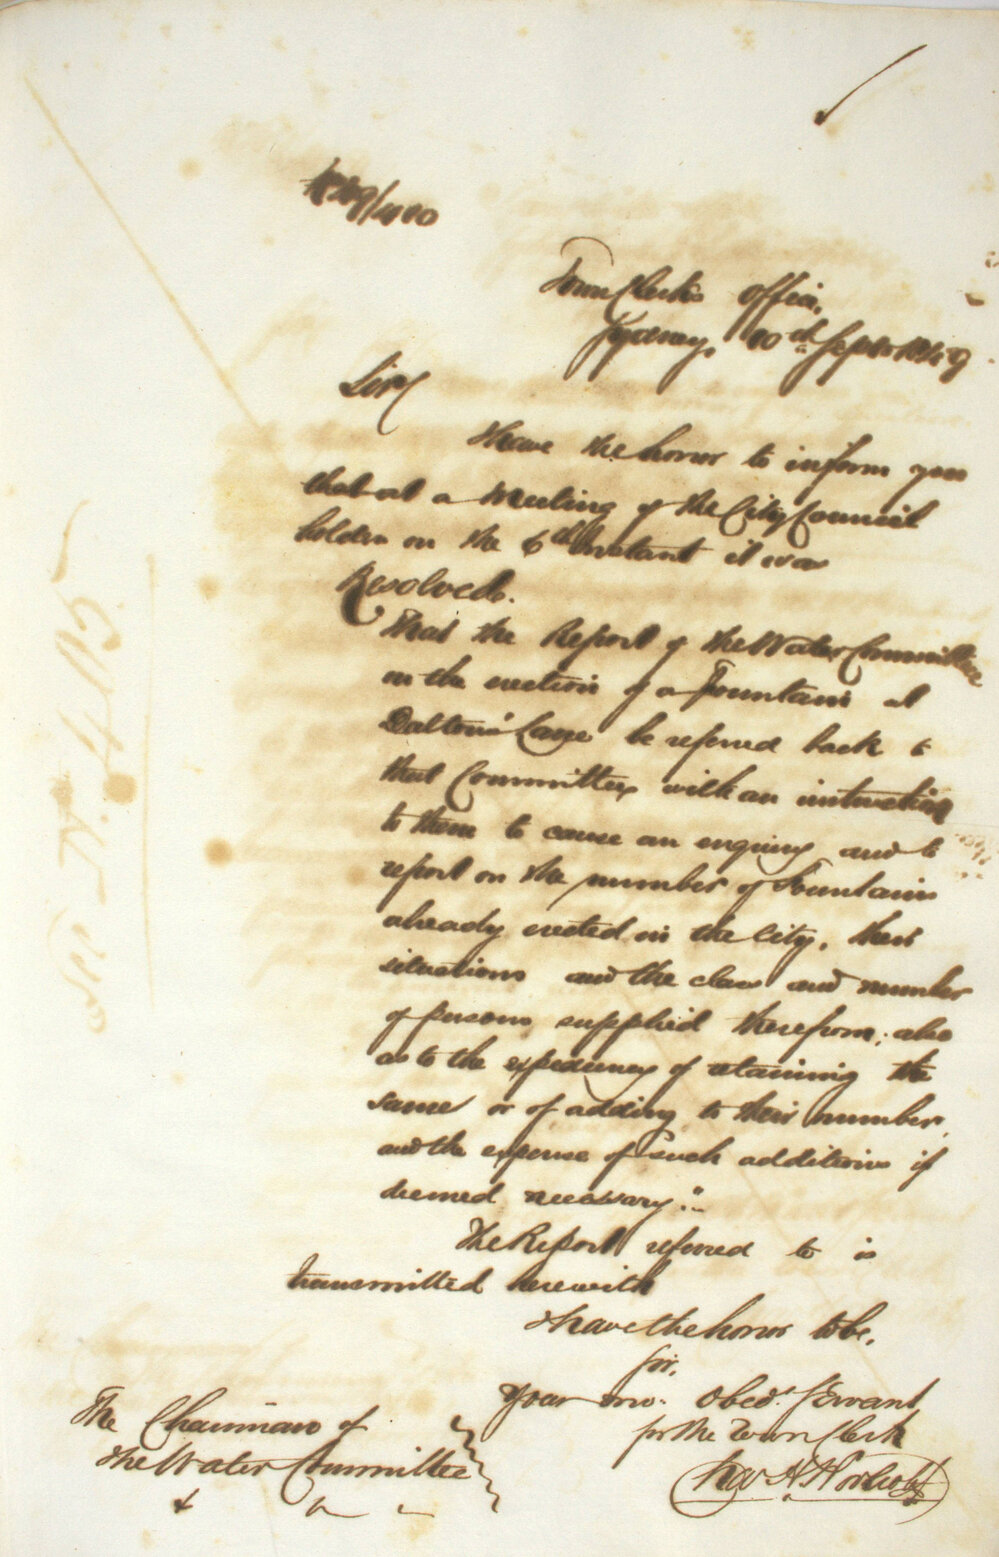 Town Clerk's Office,
Sydney, 10th Septr 1849
Sir
I have the honor to inform you
that at a Meeting of the City Council
holden on the 6th Instant it was
Resolved.
That the Report of the Water Committee
on the erection of a Fountain at
Dalton's Lane be referred back to
that Committee with an instruction
to them to cause an enquiry and to
report on the number of Fountains
already erected in the City, their
situations and the class and number
of persons supplied therefrom; also
as to the expediency of retaining the
same or of adding to their number,
and the expense of such additions if
deemed necessary."
The Report referred to is
transmitted herewith
I have the honor to be,
Sir,
Your mo. Obedt. Servant
for the Town Clerk
Chas H
The Chairman of
the Water Committee